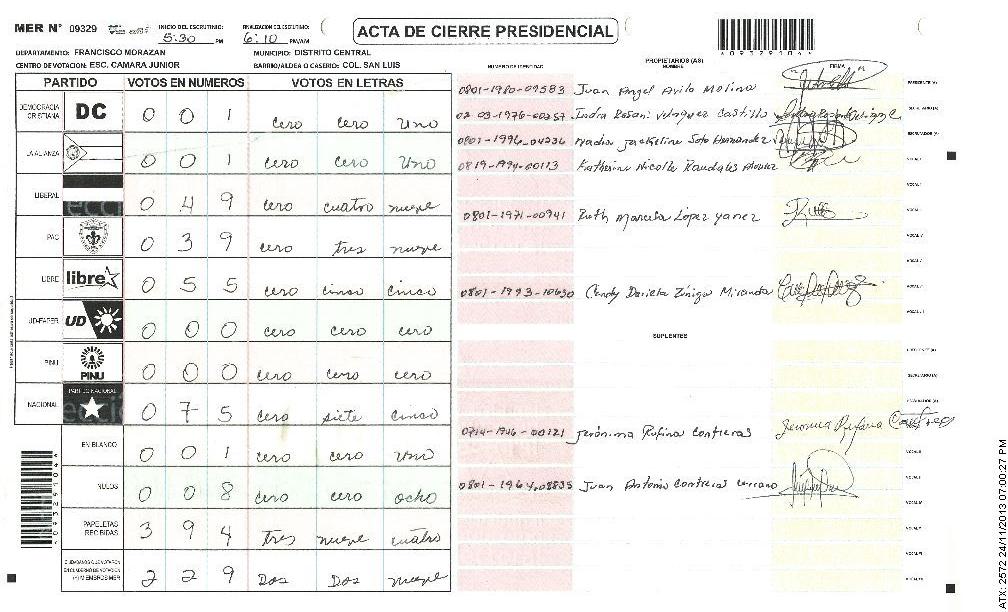 MER N° 09329 INICIO DEL ESCRUTINIO: 5:30 PM FINALIZACION DEL ESCRUTINIO: 6:10 PM/AM
ACTA DE CIERRE PRESIDENCIAL
DEPARTAMENTO: FRANCISCO MORAZAN MUNICIPIO: DISTRITO CENTRAL
CENTRO DE VOTACION: ESC. CAMARA JUNIOR BARRIO/ALDEA O CASERIO: COL. SAN LUIS
PARTIDO VOTOS EN NUMEROS VOTOS EN LETRAS
DEMOCRACIA CRISTIANA DC 0 0 1 cero cero uno
LA ALIANZA 0 0 1 cero cero uno
LIBERAL 0 4 9 cero cuatro nueve
PAC 0 3 9 cero tres nueve
LIBRE libre 0 5 5 cero cinco cinco
UD-FAPER UD 0 0 0 cero cero cero
PINU PINU 0 0 0 cero cero cero
NACIONAL PARTIDO NACIONAL 0 7 5 cero siete cinco
EN BLANCO 0 0 1 cero cero uno
NULOS 0 0 8 cero cero ocho
PAPELETAS RECIBIDAS 3 9 4 tres nueve cuatro
CIUDADANOS QUE VOTARON EN CUADERNO DE VOTACION (+) MIEMBROS MER 2 2 9 Dos Dos nueve
NUMERO DE IDENTIDAD PROPIETARIOS (AS) NOMBRE FIRMA
0801-1980-09583 Juan Angel Avila Molina PRESIDENTE (A)
Indra Rosani Velasquez Castillo SECRETARIO (A)
0801-1996-04236 Nadia Jackeline Soto Hernandez ESCRUTADOR (A)
0819-1994-00113 Katherine Nicolle Raudales Alvarez VOCAL I
0801-1971-00941 Ruth Marcela López Yanez
0801-1993-10630 Candy Dariela Zúniga Miranda
SUPLENTES
Jerónima Rufina Contreras
Juan Antonio Contreras
ATX: 2572 24/11/2013 07:00:27 PM